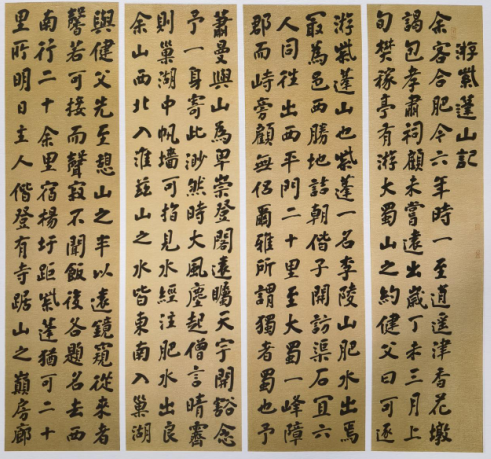 游紫蓬山记
余客合肥今六年時一至逍遥津香花墩
謁包孝肅祠顧未嘗遠出歲丁未三月上
旬樊稼亭有游大蜀山之約健父曰可遂
游紫蓬山也紫蓬一名李陵山肥水出焉
最為邑西勝地詰朝偕子開訪渠石宜六
人同往出西平門二十里至大蜀一峰障
郡而峙旁顧無侶爾雅所謂獨者蜀也予
蕭曼與山為卑崇登閣遠矚天宇開豁念
予一身寄此渺然時大風塵起僧言晴霽
則巢湖中帆墙可指見水經注肥水出良
余山西北入淮兹山之水皆東南入巢湖
與健父先至憩山之半以遠鏡窺從來者
馨若可接而聲寂不聞飯後各題名去西
南行二十余里宿楊圩距紫蓬猶可二十
里所明日主人偕登有寺踞山之巔房廊